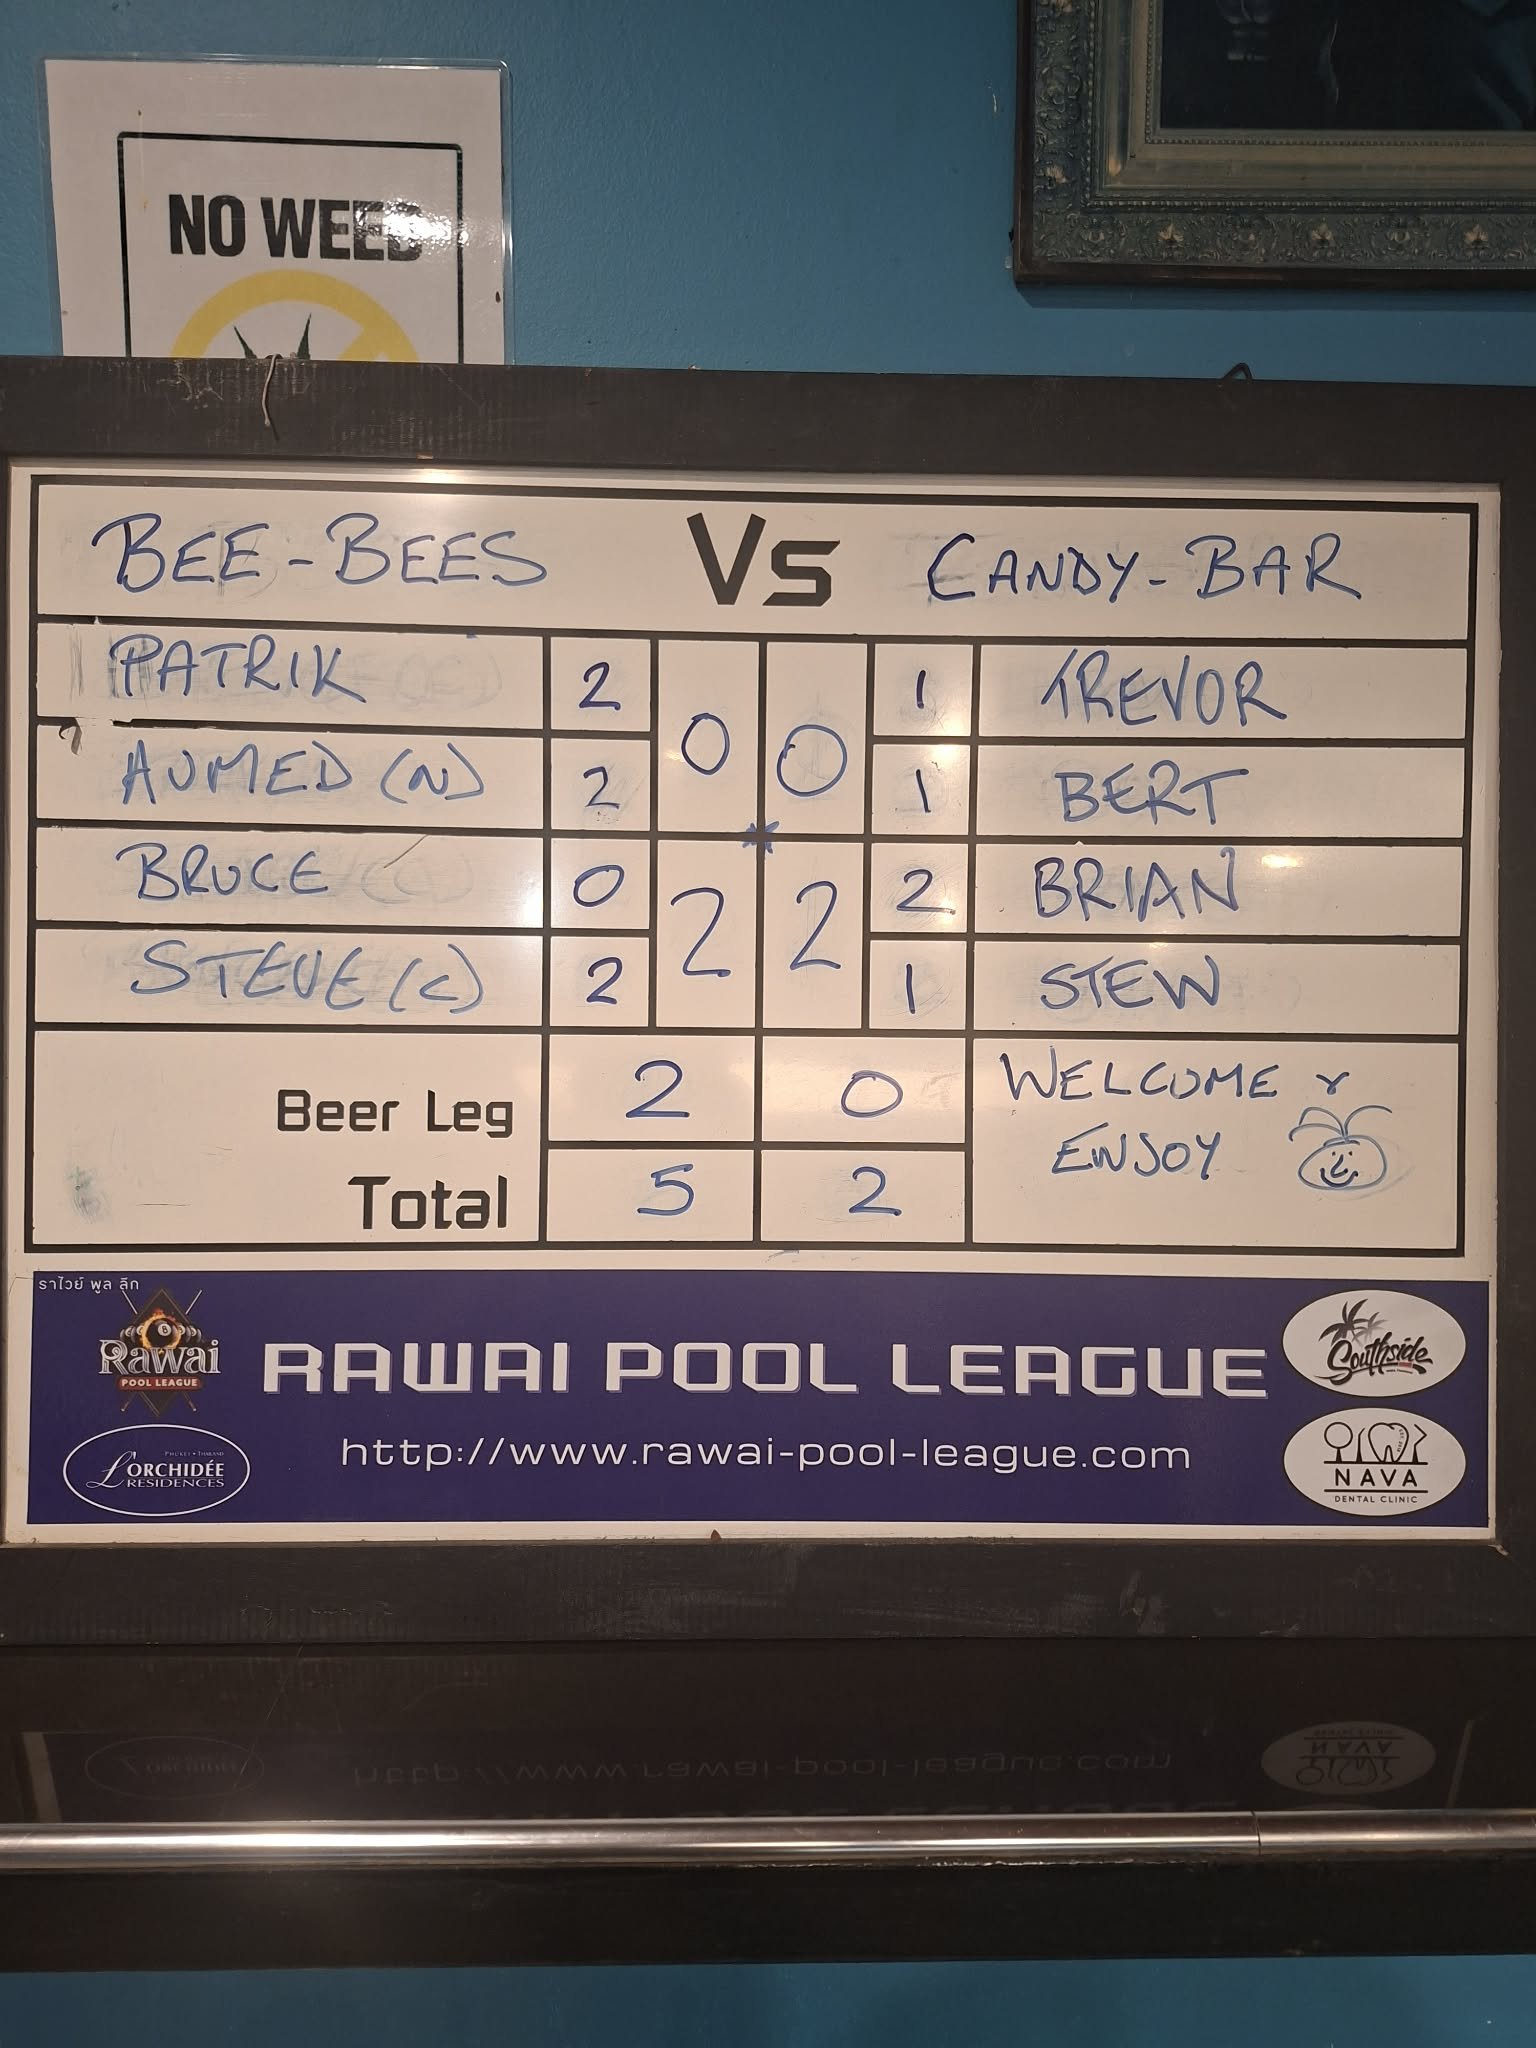 NO WEED
BEE-BEES Vs CANDY-BAR
PATRIK 2 0 0 1 TREVOR
AUMED (N) 2 1 BERT
BRUCE 0 2 2 2 BRIAN
STEVE (C) 2 1 STEW
Beer Leg 2 0 WELCOME &
ENJOY
Total 5 2
ราไวย์ พูล ลีก
Rawai
POOL LEAGUE
RAWAI POOL LEAGUE
Southside
PHUKET • THAILAND
L'ORCHIDÉE
RESIDENCES
http://www.rawai-pool-league.com
NAVA
DENTAL CLINIC